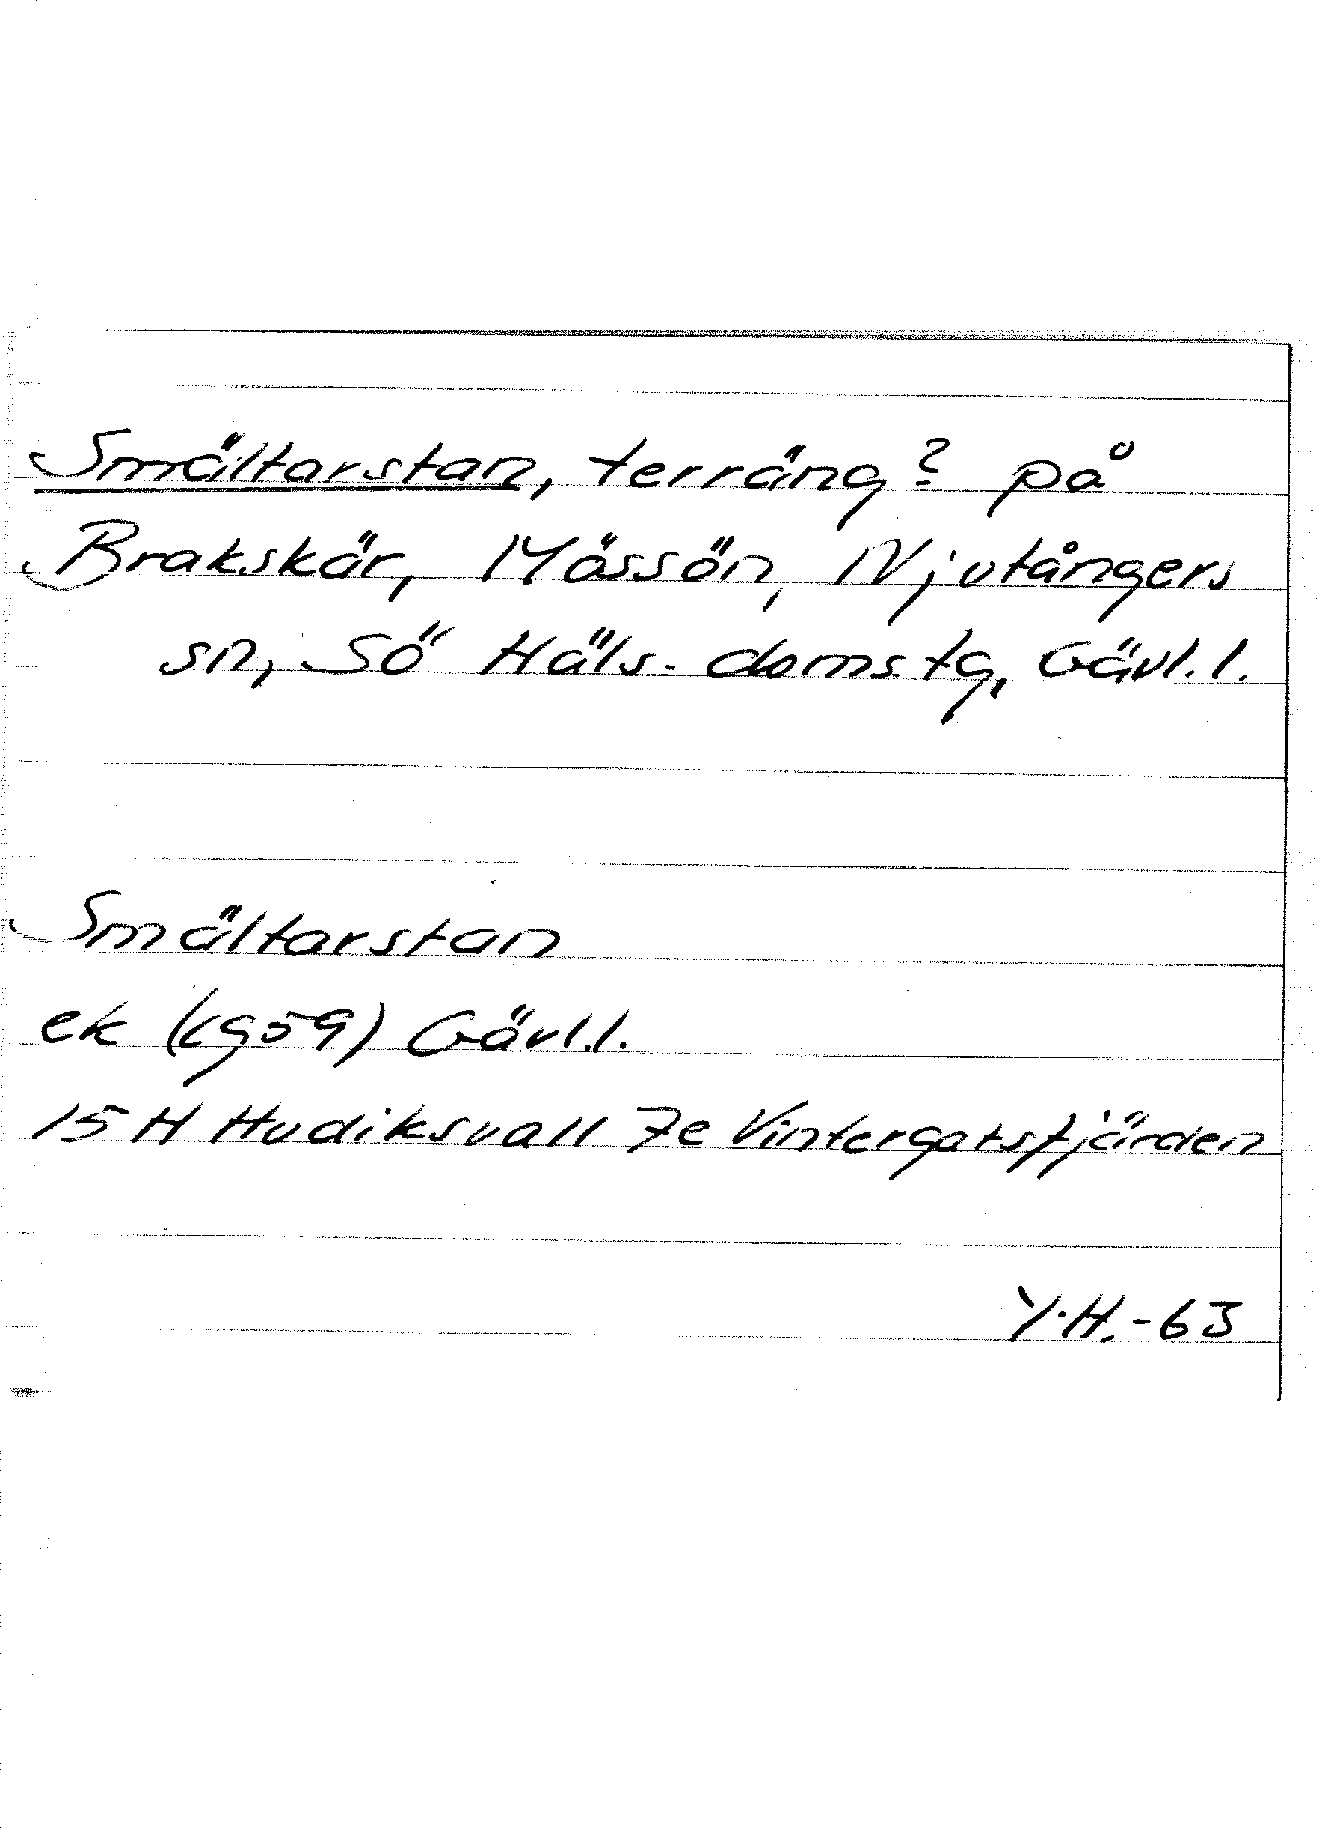 Smältarstan, terräng? på
Brakskär, Mössön, Njutångers
sn, Sö Häls. domstg, Gävl.l.
Smältarstan
ek (1959) Gävl.l.
15 H Hudiksvall 7e Vintergatsfjärden
Y.H.-63